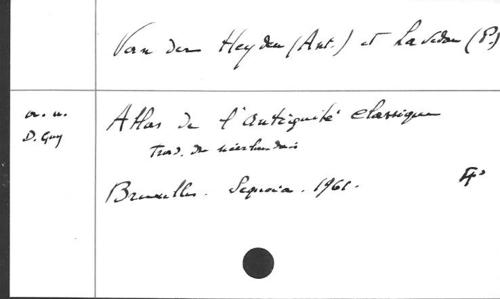 Van der Heyden (Ant.) et Lavedan (P.)
Atlas de l'antiquité classique
D. Guy
Trad. du néerlandais
Bruxelles. Sequoia. 1961.